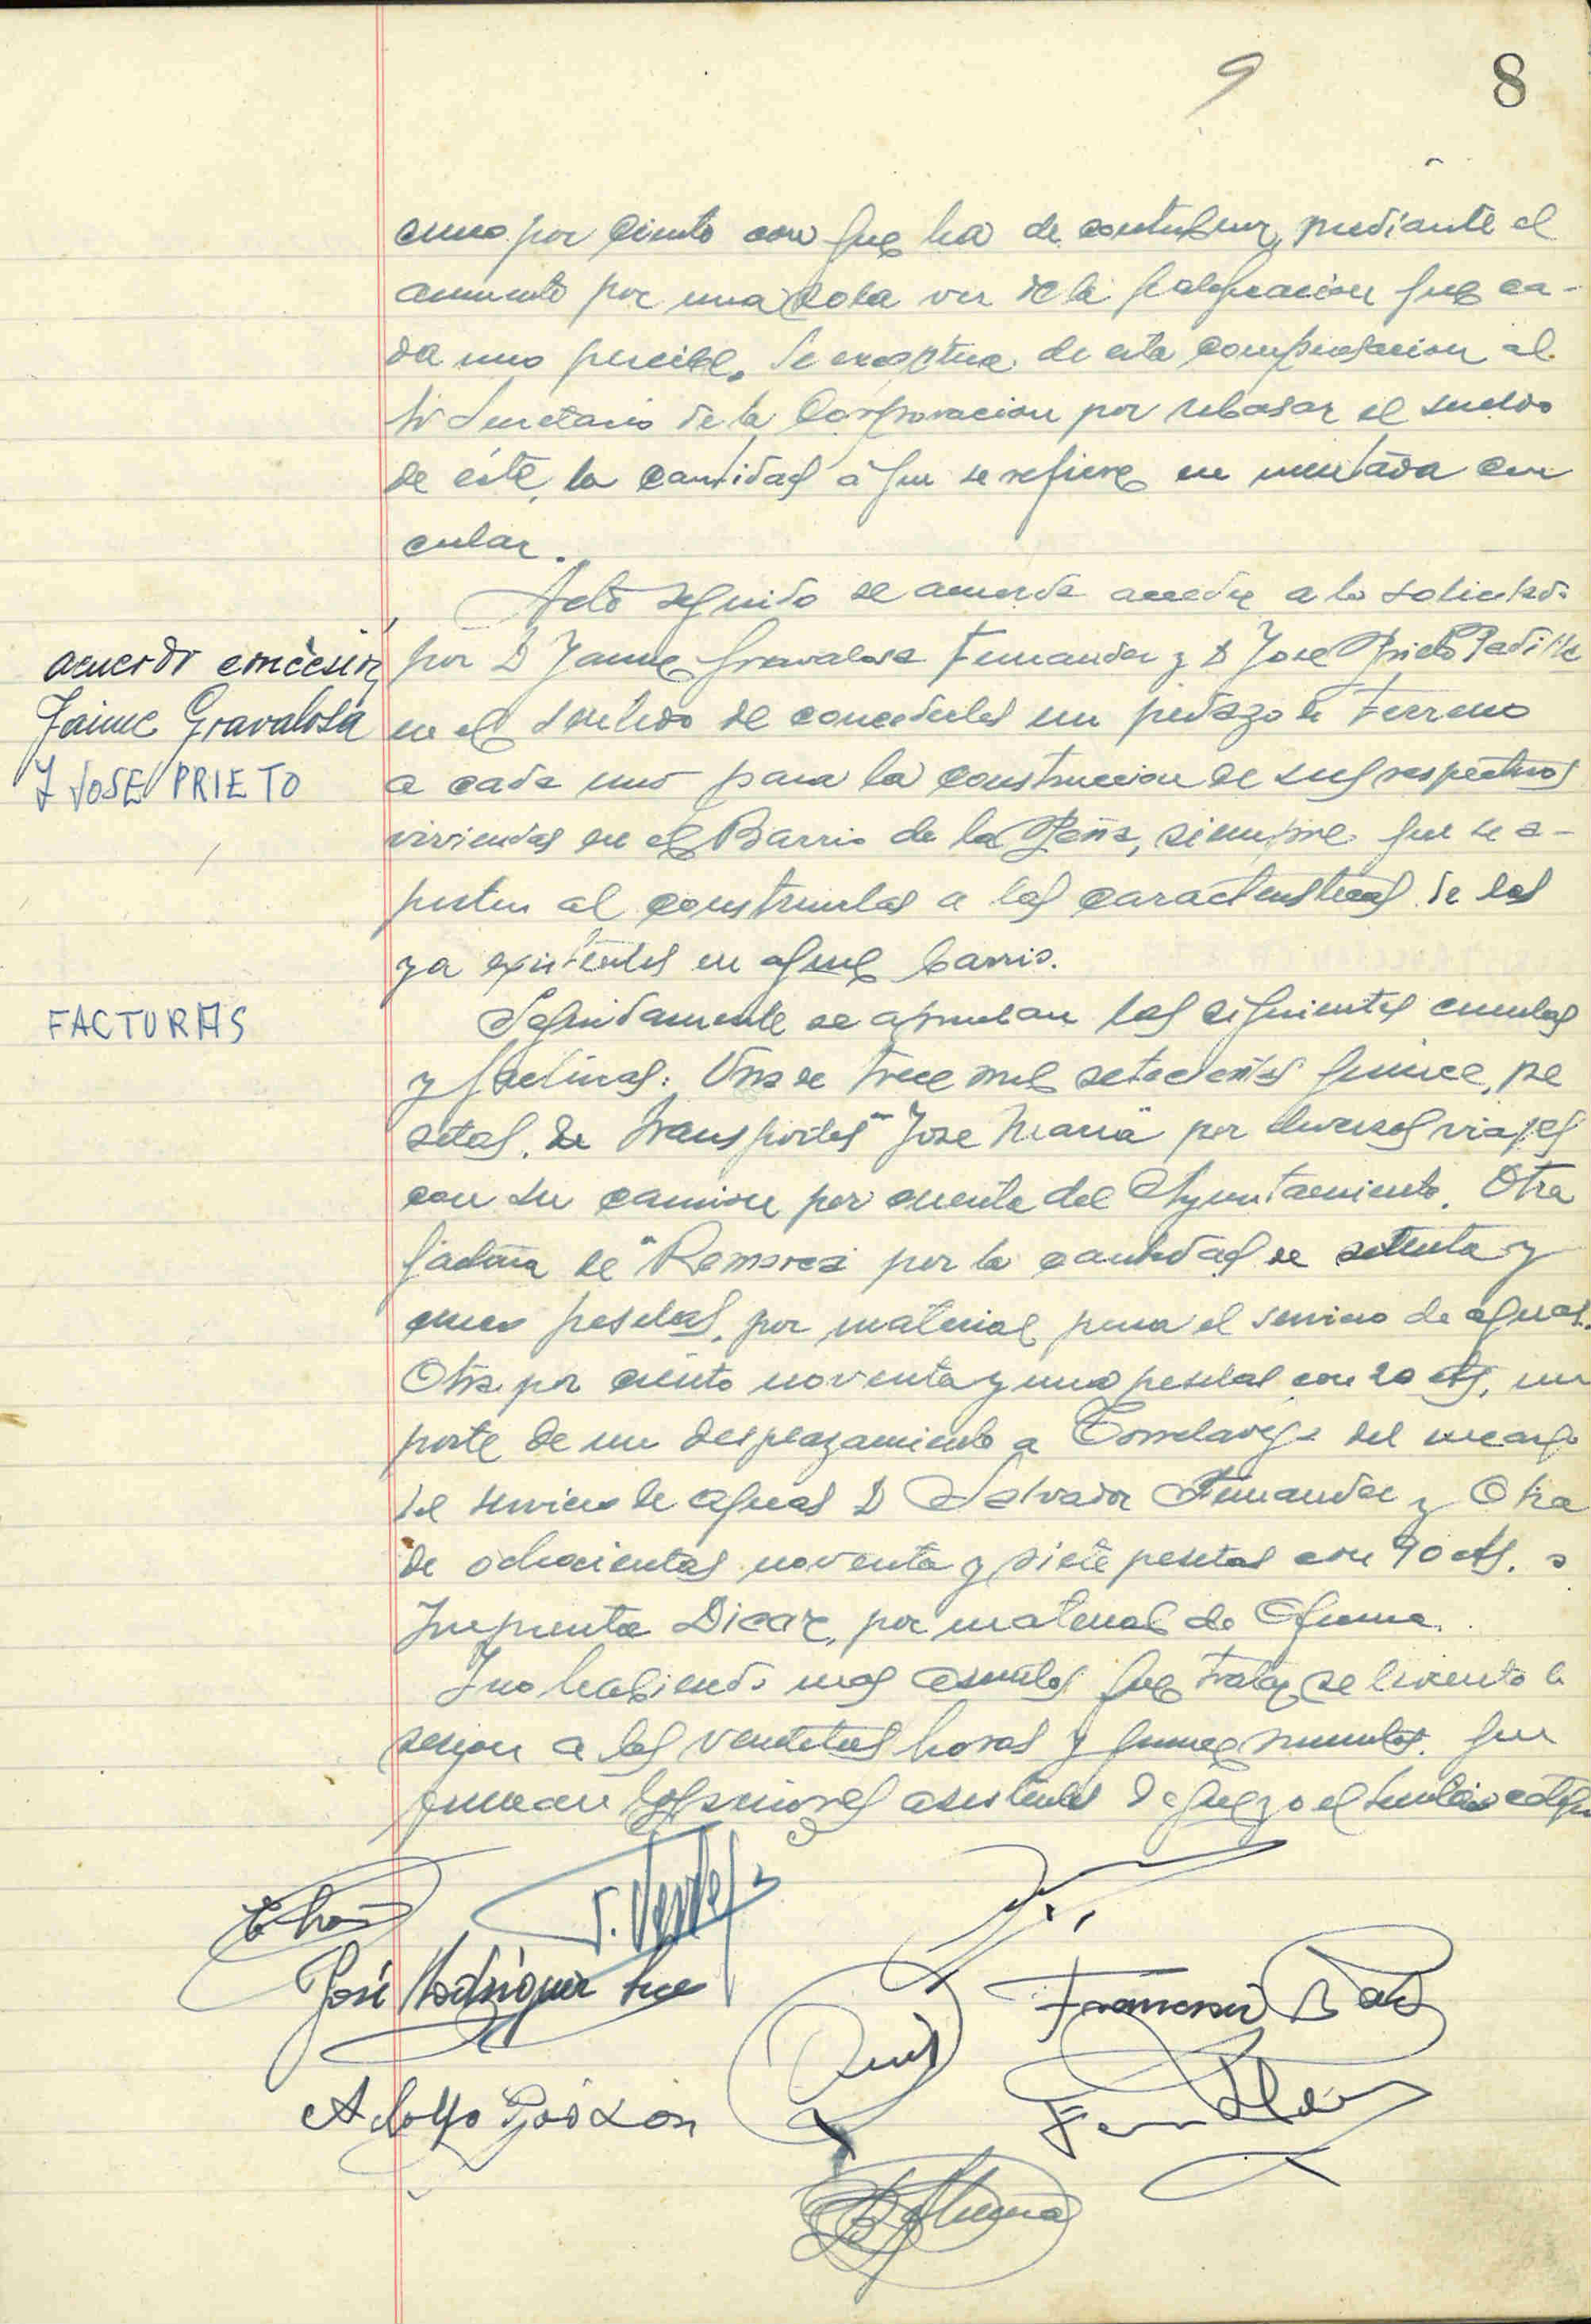 9 8
cinco por ciento con que ha de contribuir, mediante el
aumento por una sola vez de la gratificacion que ca-
da uno percibe. Se exceptua de esta compensacion al
Sr Secretario de la Corporacion por rebasar el sueldo
de éste, la cantidad á que se refiere en mentada cir
cular.
Acto seguido se acuerda acceder a lo solicitado
por D Jaime Gravalosa Fernandez y D Jose Prieto Padilla
en el sentido de concederles un pedazo de terreno
a cada uno para la construccion de sus respectivas
viviendas en el Barrio de la Peña, siempre que se a-
justen al construirlas a las caracteristicas de las
ya existentes en aquel barrio.
acuerdo concesion
Jaime Gravalosa
Y JOSE PRIETO
FACTURAS
Seguidamente se aprueban las siguientes cuentas
y facturas: Una de trece mil setecientas quince, pe
setas, de Transportes "Jose Maria" por diversos viajes
con su camion por cuenta del Ayuntamiento. Otra
factura de "Remarca por la cantidad de setenta y
cinco pesetas, por material para el servicio de aguas.
Otra por ciento noventa y una pesetas con 20 cts, im
porte de un desplazamiento a Torrelavega del encarg
del servicio de aguas D Salvador Fernandez y Otra
de ochocientas noventa y siete pesetas con 90 cts. a
Imprenta Dicar, por material de Oficina.
Y no habiendo mas asuntos que tratar, se levanto la
sesion a las veintitres horas y quince minutos. que
firman los señores asistentes de que yo el Secretario certifico
T. Verdejo
José Rodriguez
Francisco
Ruiz
Adolfo Garzon